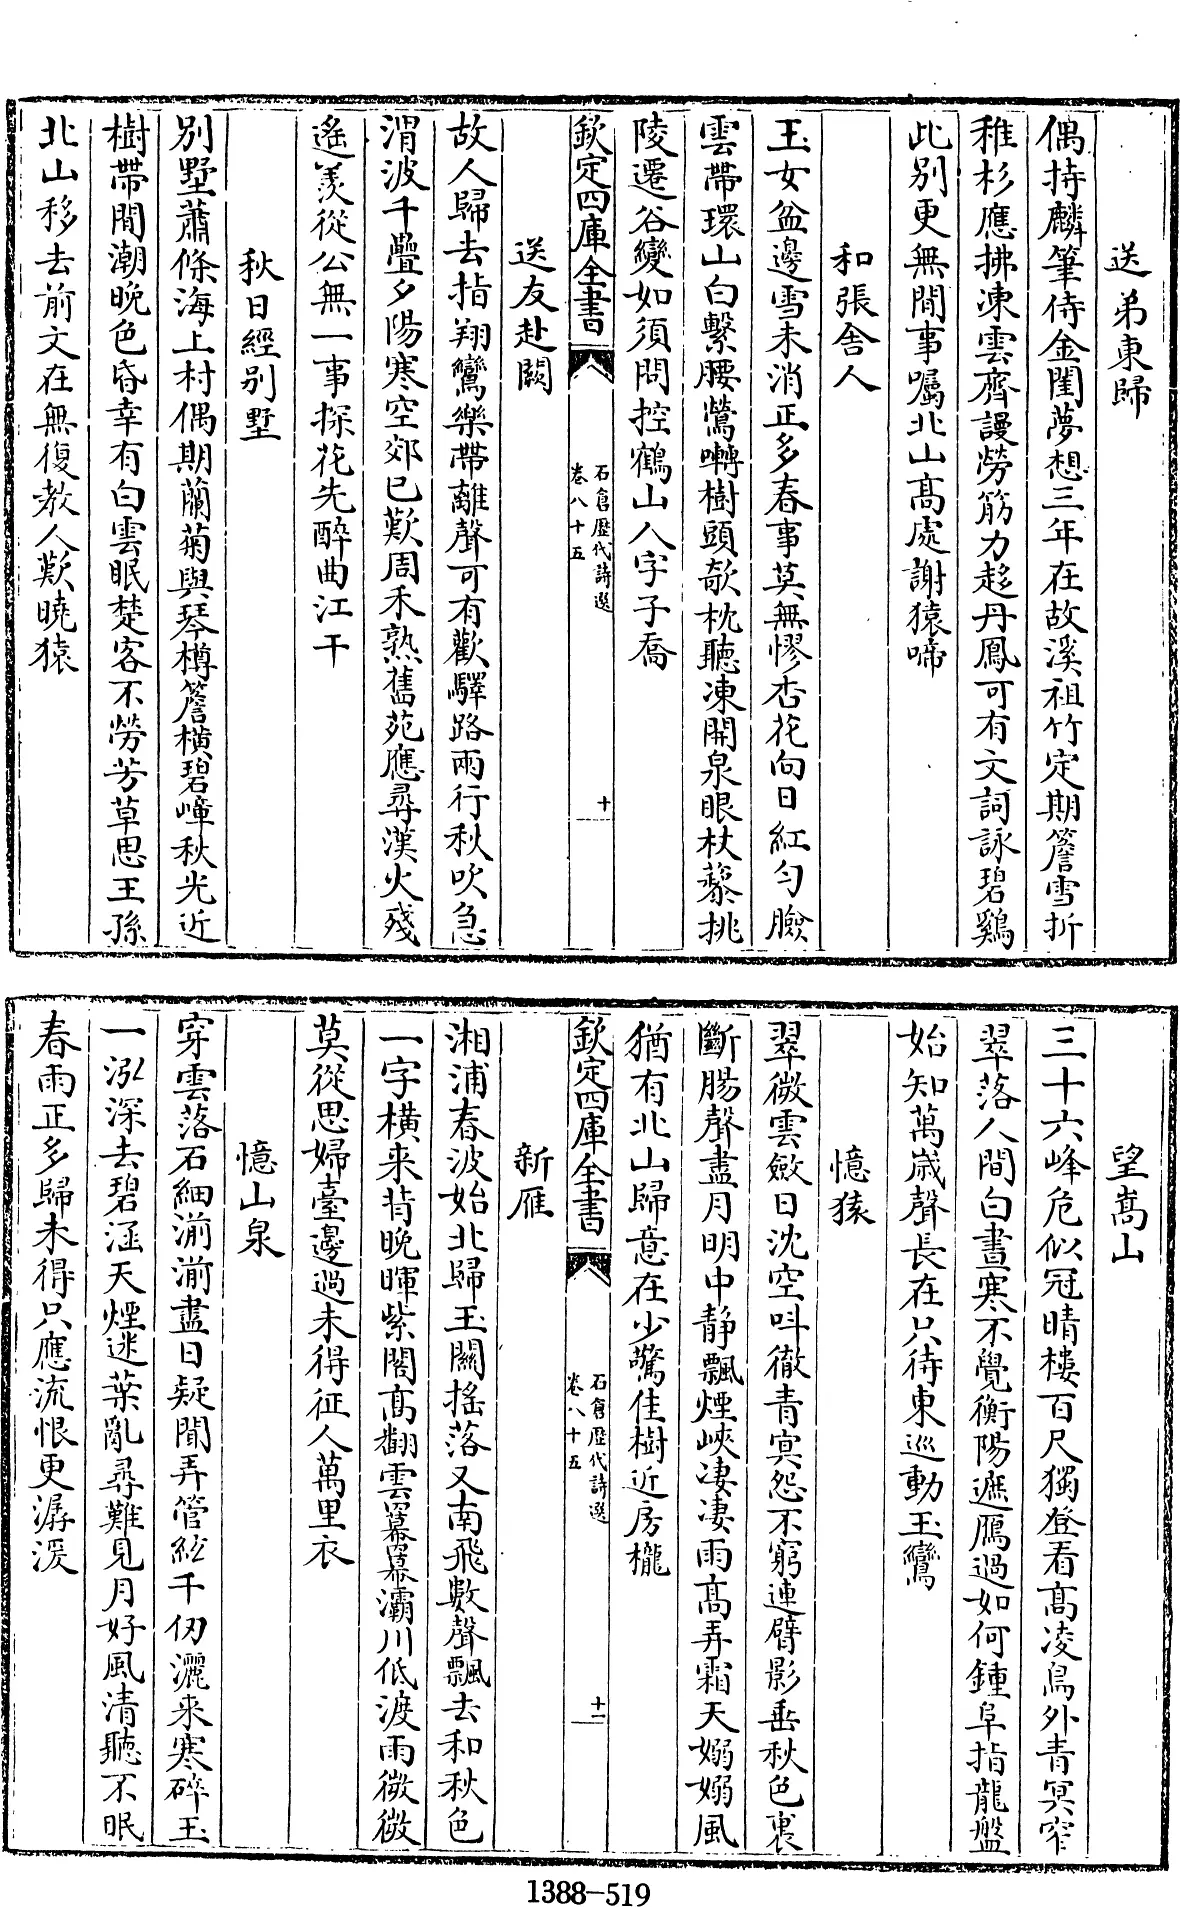 送弟東歸
偶持麟筆侍金閨夢想三年在故溪祖竹定期簷雪折
稚杉應拂凍雲齊謾勞筋力趍丹鳳可有文詞詠碧鷄
此别更無閒事囑北山髙處謝猿啼
和張舎人
玉女盆邊雪未消正多春事莫無憀杏花向日紅匀臉
雲帶環山白繫腰鶯囀樹頭欹枕聽凍開泉眼杖藜挑
陵遷谷變如須問控鶴山人字子喬
欽定四庫全書
石倉歴代詩選
卷八十五
十
送友赴闕
故人歸去指翔鸞樂帶離聲可有歡驛路雨行秋吹急
渭波千疊夕陽寒空郊已歎周禾熟舊苑應尋漢火殘
遙羨從公無一事探花先醉曲江干
秋日經别墅
别墅蕭條海上村偶期蘭菊與琴樽簷橫碧嶂秋光近
樹帶閒潮晩色昏幸有白雲眠楚客不勞芳草思王孫
北山移去前文在無復教人歎曉猿
望嵩山
三十六峰危似冠晴樓百尺獨登看髙凌鳥外青冥窄
翠落人間白晝寒不覺衡陽遮鴈過如何鍾阜指龍盤
始知萬嵗聲長在只待東巡動玉鸞
憶猿
翠微雲斂日沈空叫徹青冥怨不窮連臂影垂秋色裏
斷腸聲盡月明中靜飄煙峽凄凄雨髙弄霜天嫋嫋風
猶有北山歸意在少驚佳樹近房櫳
欽定四庫全書
石倉歴代詩選
卷八十五
十一
新雁
湘浦春波始北歸玉關摇落又南飛數聲飄去和秋色
一字橫来背晩暉紫閣髙翻雲羃羃灞川低渡雨微微
莫從思婦臺邊過未得征人萬里衣
憶山泉
穿雲落石細湔湔盡日疑聞弄管絃千仞灑来寒碎玉
一泓深去碧涵天煙迷葉亂尋難見月好風清聽不眠
春雨正多歸未得只應流恨更潺湲
1388-519